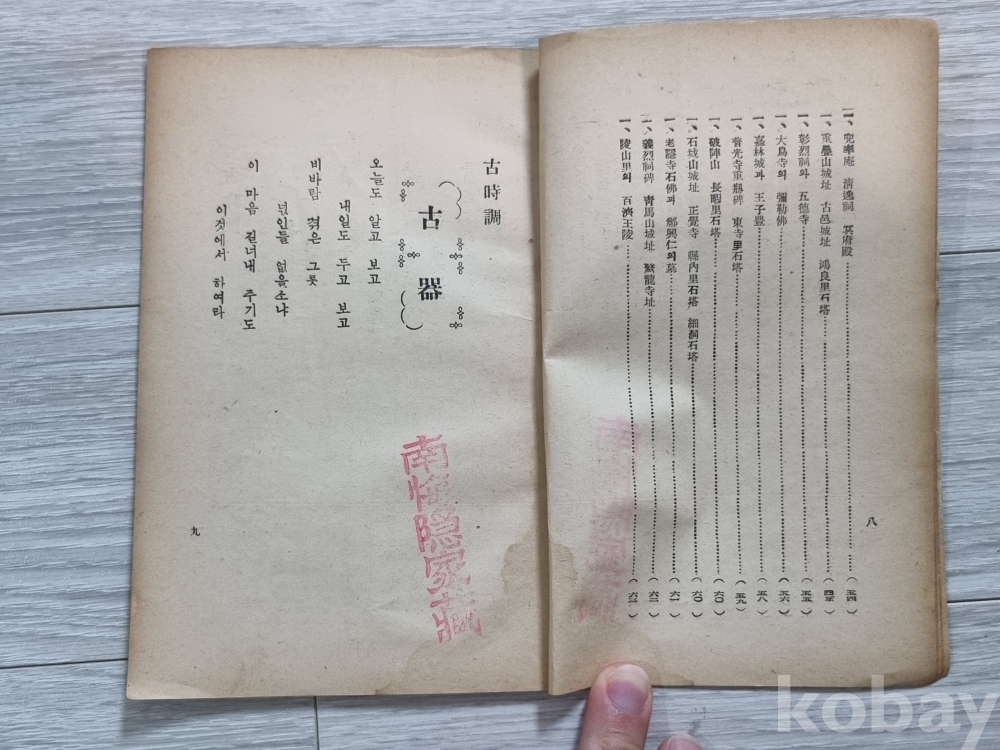 一、兜率庵 清逸祠 冥府殿 (五四)
一、重疊山城址 古邑城址 鴻良里石塔 (四五)
一、彰烈祠와 五德寺 (五五)
一、大鳥寺의 彌勒佛 (五六)
一、嘉林城과 王子豊 (五八)
一、普光寺重刱碑 東寺里石塔 (五九)
一、破陣山 長暇里石塔 (六〇)
一、石城山城址 正覺寺 縣內里石塔 細洞石塔 (六〇)
一、老隱寺石佛과 鄭興仁의墓 (六一)
一、義烈祠碑 靑馬山城址 龍寺址 (六二)
一、陵山里의 百濟王陵
八
古時調
古器
오늘도 알고 보고
내일도 두고 보고
비바람 겪은 그릇
넋인들 없을소냐
이 마음 길너내 주기도
이것에서 하여라
九
南 隐家藏
kobay